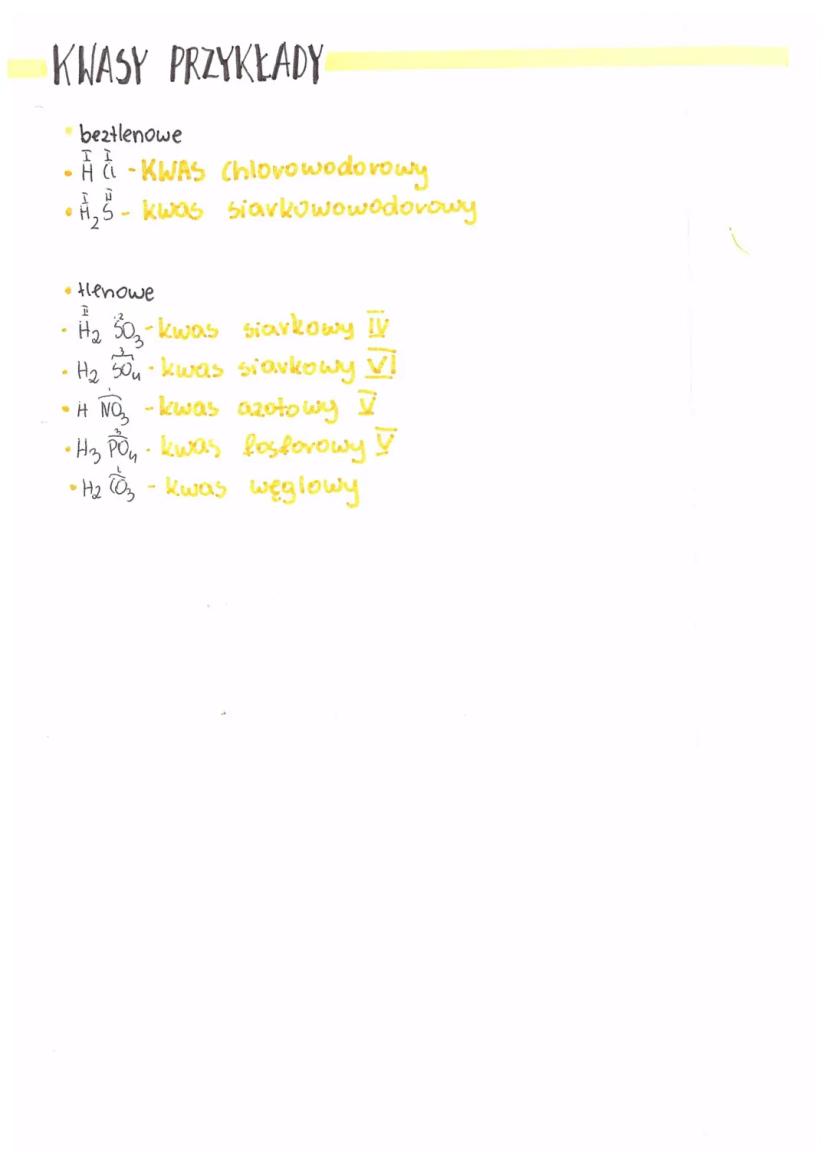 KWASY PRZYKŁADY
• beztlenowe
• H Cl - KWAS Chlorowodorowy
I I
• H₂S - kwas siarkowowodorowy
I II
• tlenowe
• H₂ SO₃ - kwas siarkowy IV
II 2
• H₂ SO₄ - kwas siarkowy VI
• H NO₃ - kwas azotowy V
• H₃ PO₄ - kwas fosforowy V
3
• H₂ CO₃ - kwas węglowy